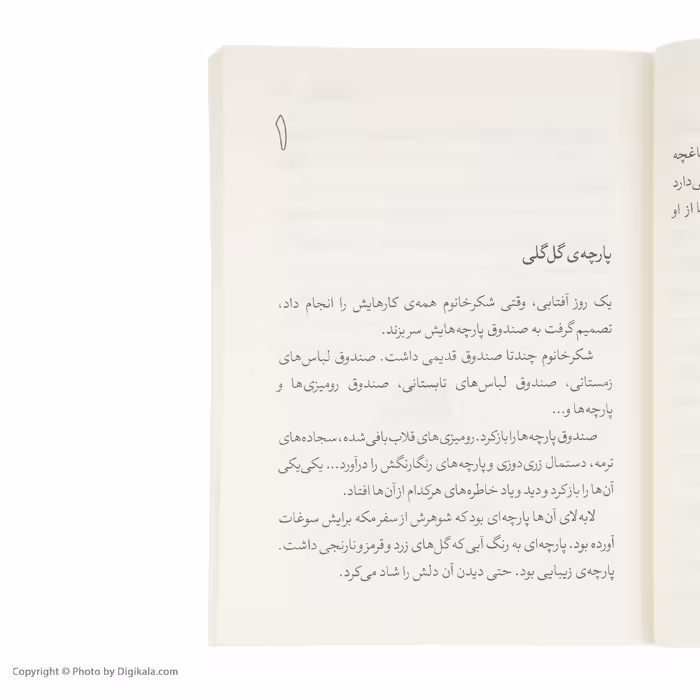 اغچه
ی‌دارد
ا از او
۱
پارچه‌ی گل‌گلی
یک روز آفتابی، وقتی شکرخانوم همه‌ی کارهایش را انجام داد،
تصمیم گرفت به صندوق پارچه‌هایش سر بزند.
شکرخانوم چندتا صندوق قدیمی داشت. صندوق لباس‌های
زمستانی، صندوق لباس‌های تابستانی، صندوق رومیزی‌ها و
پارچه‌ها و...
صندوق پارچه‌ها را باز کرد. رومیزی‌های قلاب‌بافی‌شده، سجاده‌های
ترمه، دستمال زری‌دوزی و پارچه‌های رنگارنگش را درآورد... یکی‌یکی
آن‌ها را باز کرد و دید و یاد خاطره‌های هرکدام از آن‌ها افتاد.
لابه‌لای آن‌ها پارچه‌ای بود که شوهرش از سفر مکه برایش سوغات
آورده بود. پارچه‌ای به رنگ آبی که گل‌های زرد و قرمز و نارنجی داشت.
پارچه‌ی زیبایی بود. حتی دیدن آن دلش را شاد می‌کرد.
Copyright © Photo by Digikala.com